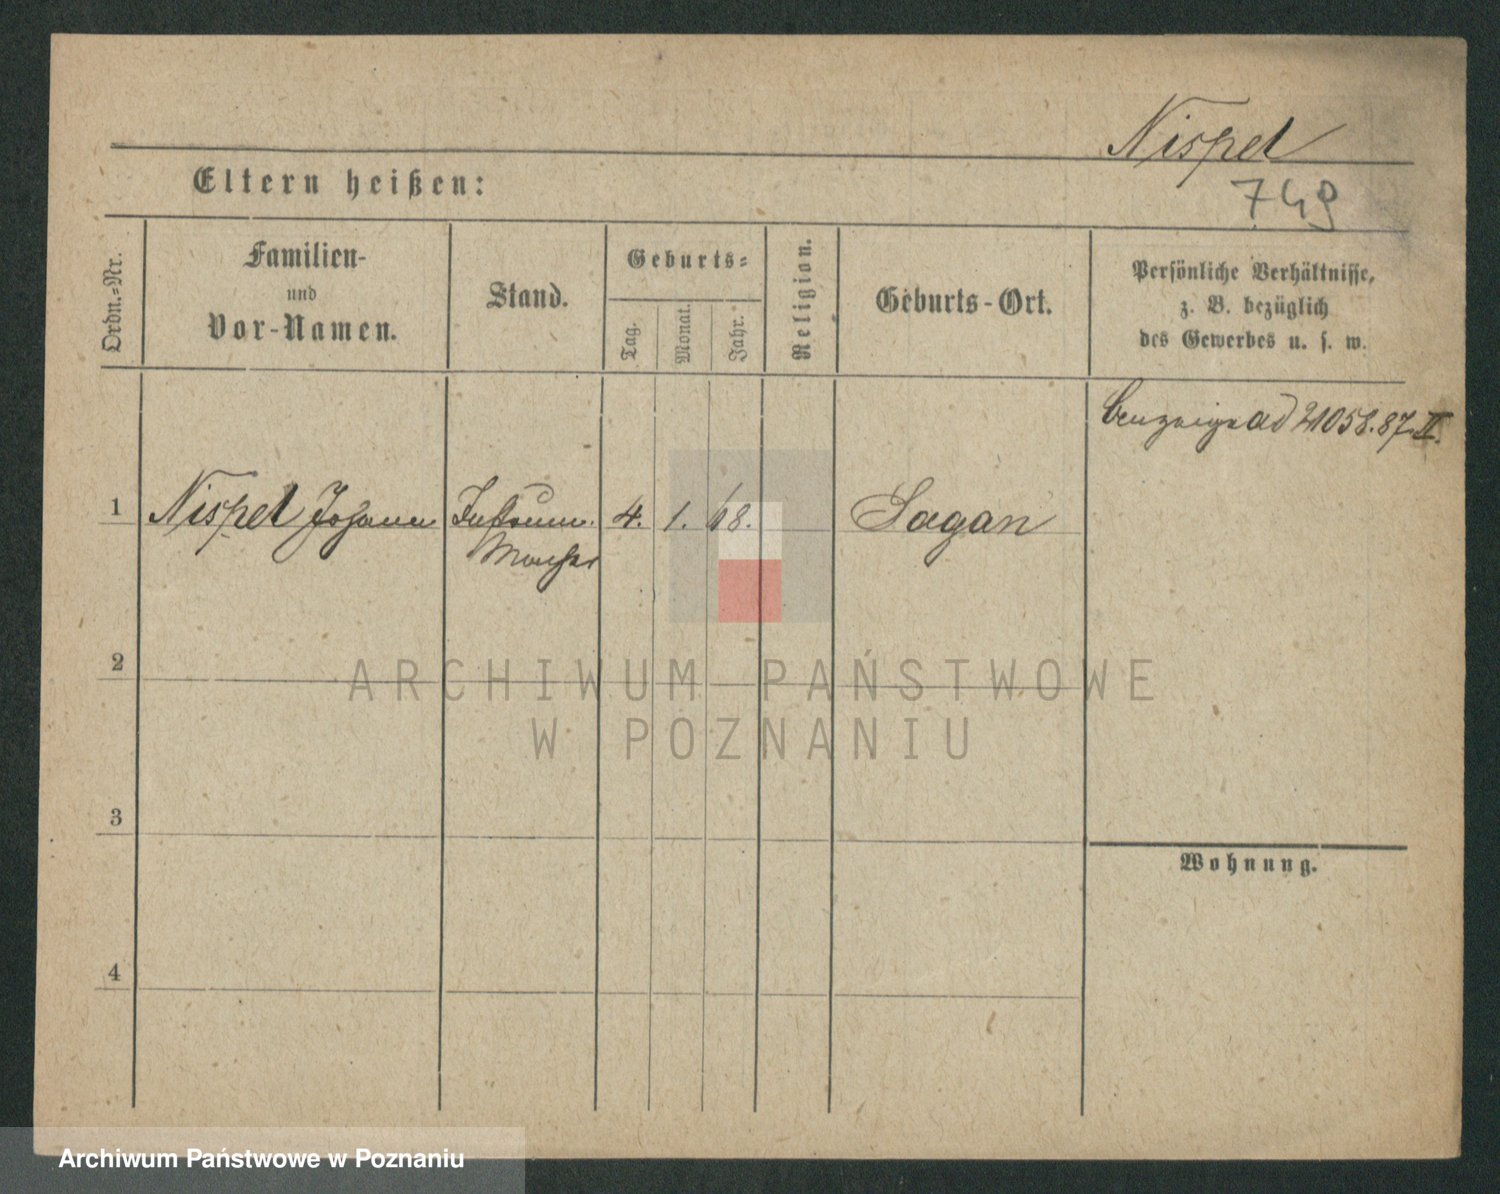 Nispel
749
Eltern heißen:
Ordn.-Nr.
Familien-
und
Vor-Namen.
Stand.
Geburts-
Tag.
Monat.
Jahr.
Religion.
Geburts-Ort.
Persönliche Verhältnisse,
z. B. bezüglich
des Gewerbes u. s. w.
ad 21058.87.II.
1 Nispel Johann Instrum. 4. 1. 68. Sagan
Macher
2
3
4
Wohnung.
ARCHIWUM PAŃSTWOWE
W POZNANIU
Archiwum Państwowe w Poznaniu